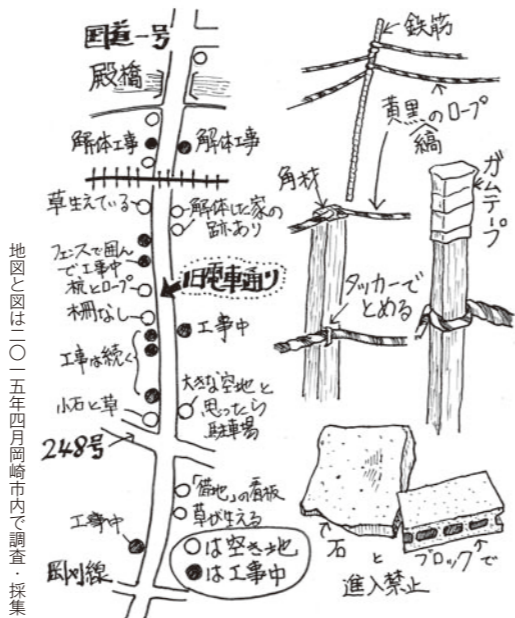 国道一号
殿橋
解体工事
解体工事
草生えている
解体した家の
跡あり
フェンスで囲ん
で工事中
杭とロープ
旧電車通り
柵なし
工事中
工事は続く
小石と草
大きな空地と
思ったら
駐車場
248号
「借地」の看板
草が生える
工事中
岡刈線
○は空き地
●は工事中
鉄筋
黄黒のロープ
縞
角材
ガムテープ
タッカーで
とめる
石
と
ブロックで
進入禁止
地図と図は二〇一五年四月岡崎市内で調査・採集